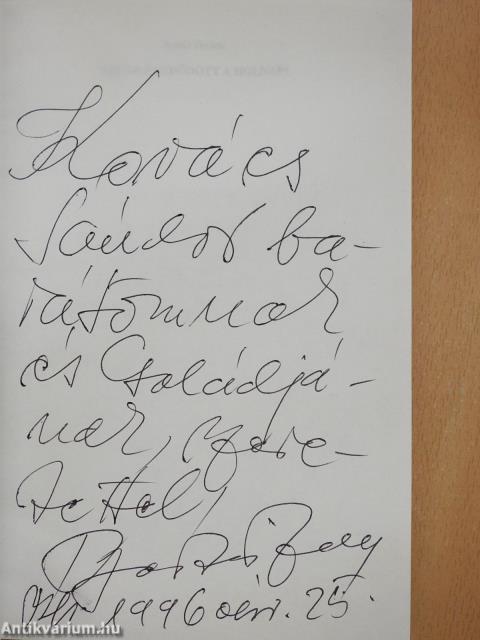 Kovács
Sándor ba-
rátomnak
és Családjá-
nak, szere-
tettel,
1996
25.
Antikvarium.hu